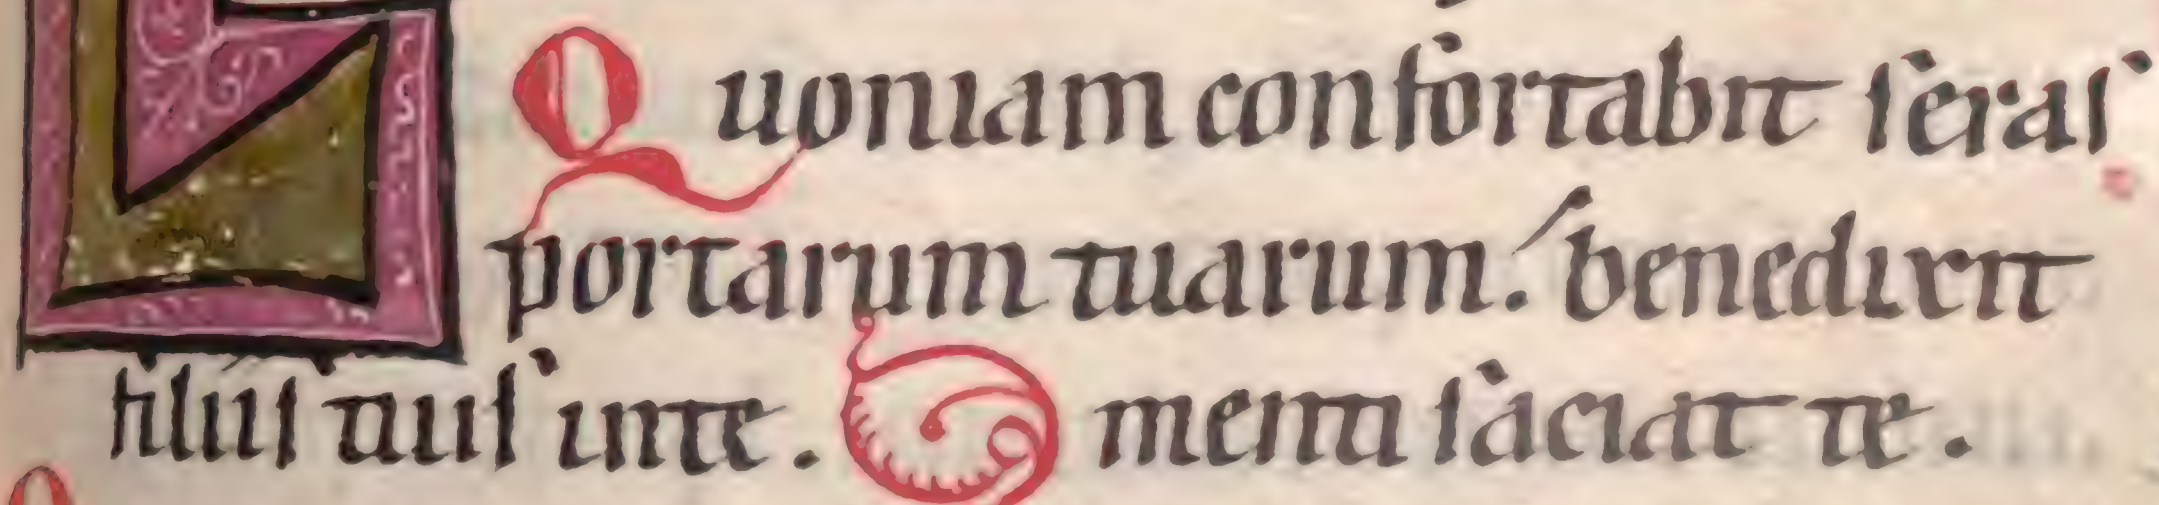 Quoniam confortabit seras
portarum tuarum. benedixit
filiis tuis inte. faciat te.